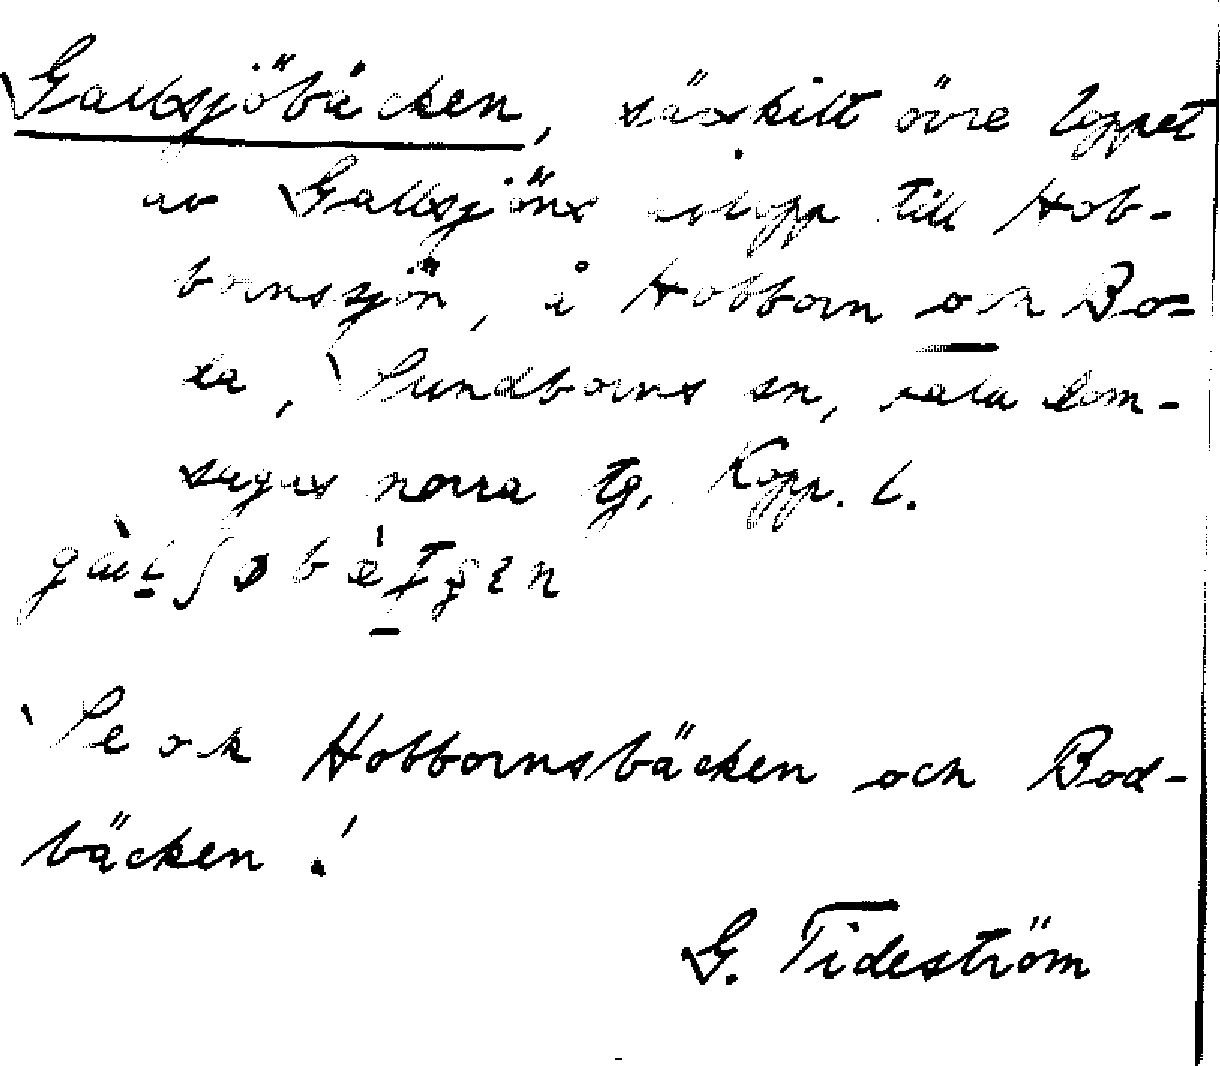 Gallsjöbäcken, särskilt övre loppet
av Gallsjöns utlopp till Hob-
bornssjön, i Hobborn och Bo-
da, Sundborns sn, Falu dom-
sagas norra tg. Kopp. l.
Se ock Hobbornsbäcken och Bod-
bäcken!
G. Tideström